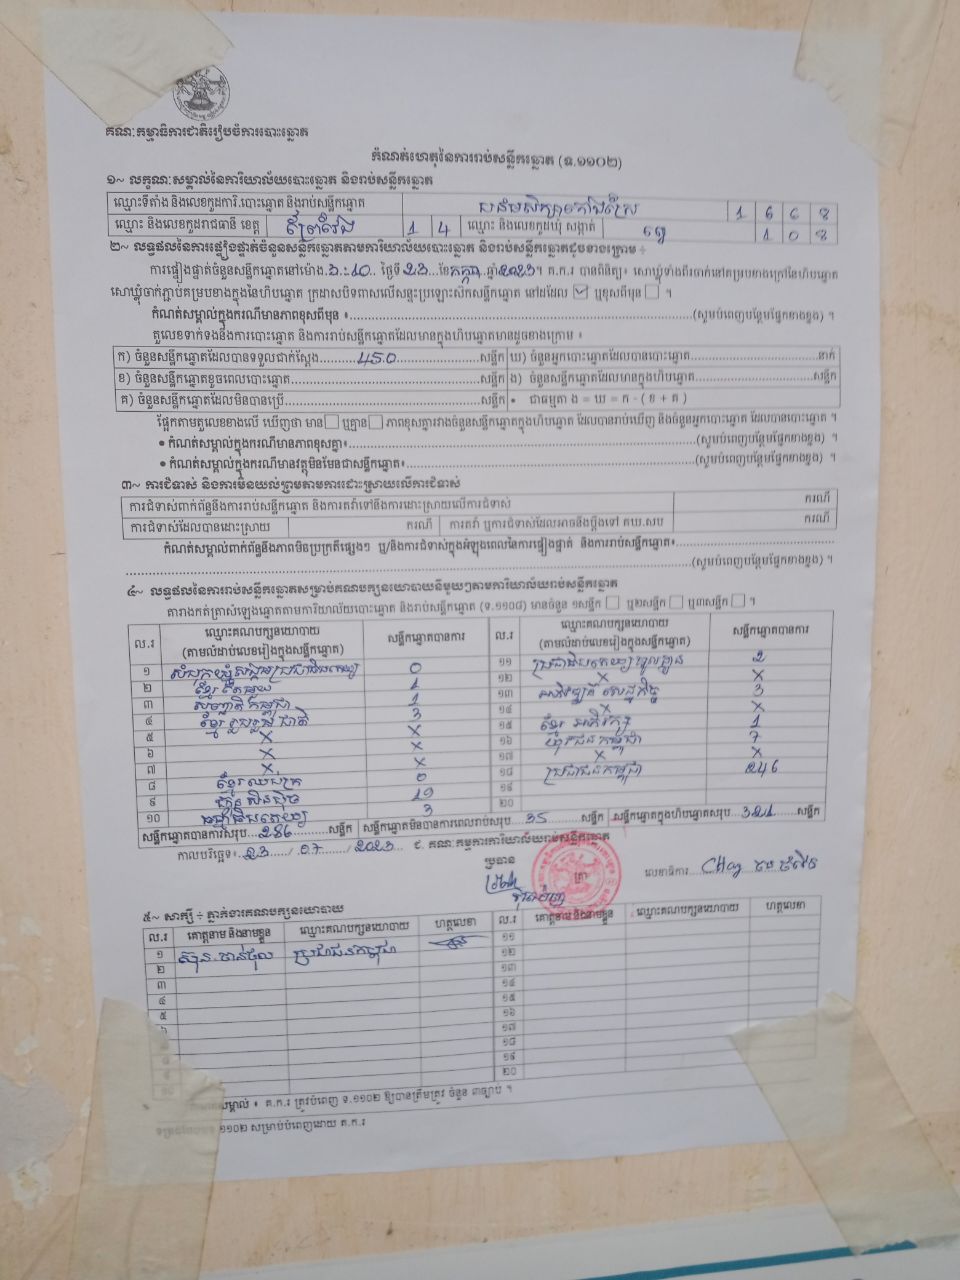 គណៈកម្មាធិការជាតិរៀបចំការបោះឆ្នោត
កំណត់ហេតុនៃការរាប់សន្លឹកឆ្នោត (ទ.១១០២)
១~ លក្ខណៈសម្គាល់នៃការិយាល័យបោះឆ្នោត និងរាប់សន្លឹកឆ្នោត
ឈ្មោះទីតាំង និងលេខកូដការិ.បោះឆ្នោត និងរាប់សន្លឹកឆ្នោត
ឈ្មោះ និងលេខកូដរាជធានី ខេត្ត ព្រៃវែង 1 4 ឈ្មោះ និងលេខកូដឃុំ សង្កាត់
២~ លទ្ធផលនៃការផ្ទៀងផ្ទាត់ចំនួនសន្លឹកឆ្នោតតាមការិយាល័យបោះឆ្នោត និងរាប់សន្លឹកឆ្នោតដូចខាងក្រោម ÷
ការផ្ទៀងផ្ទាត់ចំនួនសន្លឹកឆ្នោតនៅម៉ោង ថ្ងៃទី 23 ខែ កក្កដា ឆ្នាំ 2023។ គ.ក.រ បានពិនិត្យ៖ សោឃ្លុំទាំងពីរចាក់នៅគម្របខាងក្រៅនៃហិបឆ្នោត
សោឃ្លុំចាក់ភ្ជាប់គម្របខាងក្នុងនៃហិបឆ្នោត ក្រដាសបិទពាសលើសន្ទះប្រឡោះស៊កសន្លឹកឆ្នោត នៅដដែល ឬខុសពីមុន ។
កំណត់សម្គាល់ក្នុងករណីមានភាពខុសពីមុន ៖ (សូមបំពេញបន្ថែមផ្នែកខាងខ្នង) ។
តួលេខទាក់ទងនឹងការបោះឆ្នោត និងការរាប់សន្លឹកឆ្នោតដែលមានក្នុងហិបឆ្នោតមានដូចខាងក្រោម ៖
ក) ចំនួនសន្លឹកឆ្នោតដែលបានទទួលជាក់ស្តែង 450 សន្លឹក ឃ) ចំនួនអ្នកបោះឆ្នោតដែលបានបោះឆ្នោត នាក់
ខ) ចំនួនសន្លឹកឆ្នោតខូចពេលបោះឆ្នោត សន្លឹក ង) ចំនួនសន្លឹកឆ្នោតដែលមានក្នុងហិបឆ្នោត សន្លឹក
គ) ចំនួនសន្លឹកឆ្នោតដែលមិនបានប្រើ សន្លឹក • ជាធម្មតា ង = ឃ = ក - ( ខ + គ )
ផ្អែកតាមតួលេខខាងលើ ឃើញថា មាន ឬគ្មាន ភាពខុសគ្នារវាងចំនួនសន្លឹកឆ្នោតក្នុងហិបឆ្នោត ដែលបានរាប់ឃើញ និងចំនួនអ្នកបោះឆ្នោត ដែលបានបោះឆ្នោត ។
• កំណត់សម្គាល់ក្នុងករណីមានភាពខុសគ្នា៖ (សូមបំពេញបន្ថែមផ្នែកខាងខ្នង) ។
• កំណត់សម្គាល់ក្នុងករណីមានវត្ថុមិនមែនជាសន្លឹកឆ្នោត៖ (សូមបំពេញបន្ថែមផ្នែកខាងខ្នង) ។
៣~ ការជំទាស់ និងការមិនយល់ព្រមតាមការដោះស្រាយលើការជំទាស់
ការជំទាស់ពាក់ព័ន្ធនឹងការរាប់សន្លឹកឆ្នោត និងការតវ៉ាទៅនឹងការដោះស្រាយលើការជំទាស់ ករណី
ការជំទាស់ដែលបានដោះស្រាយ ករណី ការតវ៉ា ឬការជំទាស់ដែលអាចនឹងប្តឹងទៅ គឃ.សប ករណី
កំណត់សម្គាល់ពាក់ព័ន្ធនឹងភាពមិនប្រក្រតីផ្សេងៗ ឬ/និងការជំទាស់ក្នុងអំឡុងពេលនៃការផ្ទៀងផ្ទាត់ និងការរាប់សន្លឹកឆ្នោត៖
(សូមបំពេញបន្ថែមផ្នែកខាងខ្នង) ។
៤~ លទ្ធផលនៃការរាប់សន្លឹកឆ្នោតសម្រាប់គណបក្សនយោបាយនីមួយៗតាមការិយាល័យរាប់សន្លឹកឆ្នោត
តារាងកត់ត្រាសំឡេងឆ្នោតតាមការិយាល័យបោះឆ្នោត និងរាប់សន្លឹកឆ្នោត (ទ.១១០៨) មានចំនួន ១សន្លឹក ឬ២សន្លឹក ឬ៣សន្លឹក ។
ល.រ ឈ្មោះគណបក្សនយោបាយ (តាមលំដាប់លេខរៀងក្នុងសន្លឹកឆ្នោត) សន្លឹកឆ្នោតបានការ ល.រ ឈ្មោះគណបក្សនយោបាយ (តាមលំដាប់លេខរៀងក្នុងសន្លឹកឆ្នោត) សន្លឹកឆ្នោតបានការ
១ 0 ១១ 2
២ 1 ១២ X X
៣ សញ្ជាតិកម្ពុជា 1 ១៣ 3
៤ ខ្មែររួបរួមជាតិ 3 ១៤ X X
៥ X X ១៥ ខ្មែរអភិរក្ស 1
៦ X X ១៦ យុវជនកម្ពុជា 7
៧ X X ១៧ X X
៨ ១៨ ប្រជាជនកម្ពុជា 246
៩ ហ៊្វុនស៊ិនប៉ិច 19 ១៩
១០ 3 ២០
សន្លឹកឆ្នោតបានការសរុប 286 សន្លឹក សន្លឹកឆ្នោតមិនបានការពេលរាប់សរុប 35 សន្លឹក សន្លឹកឆ្នោតក្នុងហិបឆ្នោតសរុប 321 សន្លឹក
កាលបរិច្ឆេទ៖ 23 / 07 / 2023 ជ. គណៈកម្មការការិយាល័យរាប់សន្លឹកឆ្នោត
ប្រធាន ត្រា លេខាធិការ
៥~ សាក្សី ÷ ភ្នាក់ងារគណបក្សនយោបាយ
ល.រ គោត្តនាម និងនាមខ្លួន ឈ្មោះគណបក្សនយោបាយ ហត្ថលេខា ល.រ គោត្តនាម និងនាមខ្លួន ឈ្មោះគណបក្សនយោបាយ ហត្ថលេខា
១ ប្រជាជនកម្ពុជា ១១
២ ១២
៣ ១៣
៤ ១៤
៥ ១៥
១៦
១៧
១៨
១៩
២០
សម្គាល់ ៖ គ.ក.រ ត្រូវបំពេញ ទ.១១០២ ឱ្យបានត្រឹមត្រូវ ចំនួន ៣ច្បាប់ ។
១១០២ សម្រាប់បំពេញដោយ គ.ក.រ